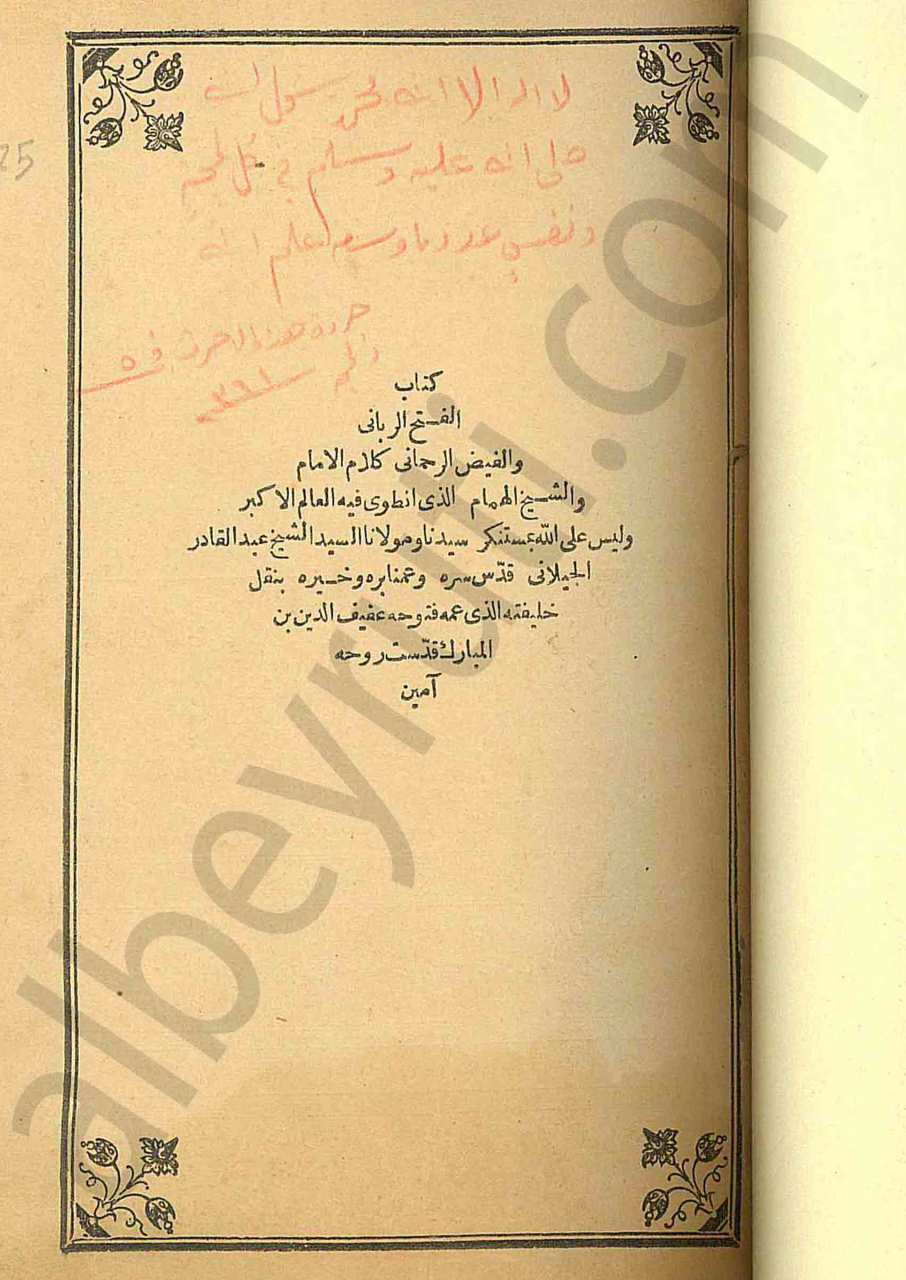 لا اله الا الله محمد رسول الله
صلى الله عليه وسلم في كل لمحة
ونفس عدد ما وسعه علم الله
حررة هذه الاحرف في ٥
25
كتاب
الفتح الربانى
والفيض الرحمانى كلام الامام
والشيخ الهمام الذى انطوى فيه العالم الاكبر
وليس على الله بمستنكر سيدنا ومولانا السيد الشيخ عبد القادر
الجيلانى قدّس سره وعمنا بره وخيره بنقل
خليفته الذى عمه فتوحه عفيف الدين بن
المبارك قدّست روحه
آمين
albeyruti.com